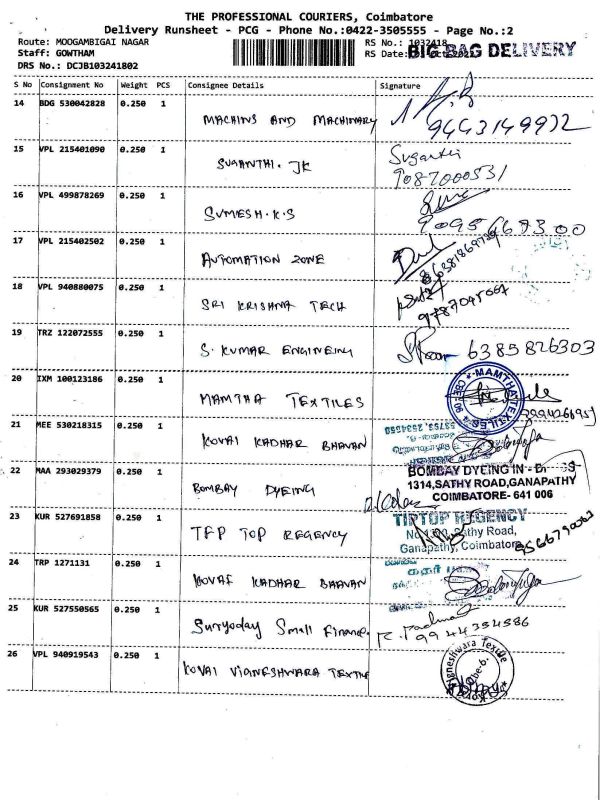 THE PROFESSIONAL COURIERS, Coimbatore
Delivery Runsheet - PCG - Phone No.:0422-3505555 - Page No.:2
Route: MOOGAMBIGAI NAGAR
Staff: GOWTHAM
DRS No.: DCJB103241802
RS No.: 1032418
RS Date:
BIG BAG DELIVERY
S No Consignment No Weight PCS Consignee Details Signature
14 BDG 530042828 0.250 1 MACHINS AND MACHINARY 9443149932
15 VPL 215401090 0.250 1 SUGANTHI. JK Suganthi 9087000531
16 VPL 499878269 0.250 1 SUMESH.K.S
17 VPL 215402502 0.250 1 AUTOMATION ZONE
18 VPL 940880075 0.250 1 SRI KRISHNA TECH
19 TRZ 122072555 0.250 1 S. KUMAR ENGINEING 6385826303
20 IXM 100123186 0.250 1 MAMTHA TEXTILES
MAMTHA TEXTILES
21 MEE 530218315 0.250 1 KOVAI KADHAR BHAVAN
22 MAA 293029379 0.250 1 BOMBAY DYEING
BOMBAY DYEING
1314,SATHY ROAD,GANAPATHY
COIMBATORE- 641 006
23 KUR 527691858 0.250 1 TFP TOP REGENCY
TIPTOP REGENCY
Sathy Road,
Ganapathy, Coimbatore
24 TRP 1271131 0.250 1 KOVAI KADHAR BHAVAN
25 KUR 527550565 0.250 1 Suryoday Small Finance. R. Padma 9944354586
26 VPL 940919543 0.250 1 KOVAI VIGNESHWARA TEXTILE